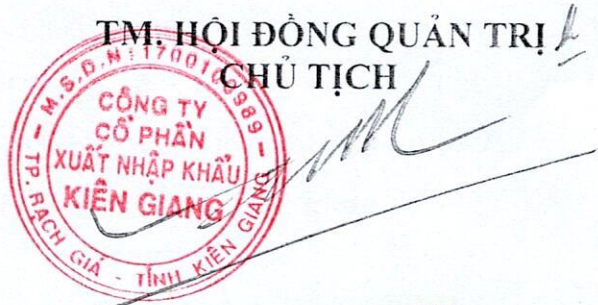 TM. HỘI ĐỒNG QUẢN TRỊ
CHỦ TỊCH
M.S.D.N:
CÔNG TY
CỔ PHẦN
XUẤT NHẬP KHẨU
KIÊN GIANG
TP. RẠCH GIÁ - TỈNH KIÊN GIANG